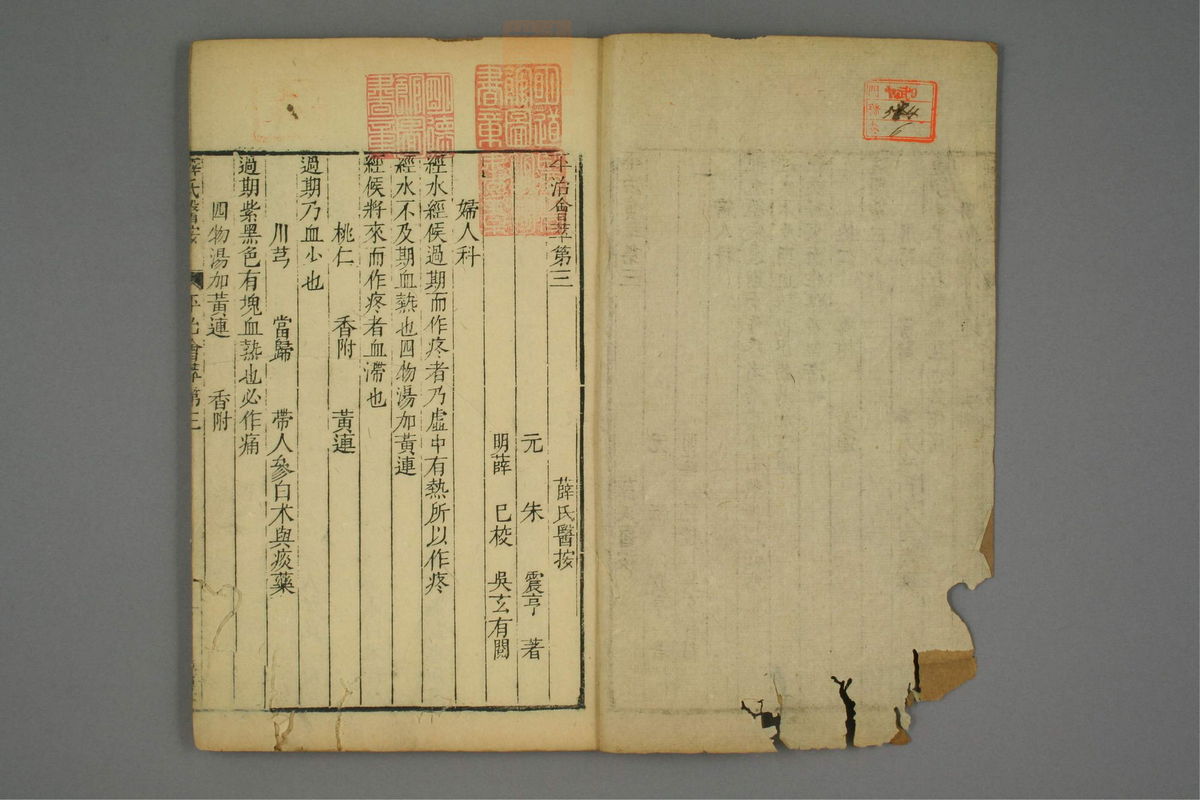 平治會萃第三　薛氏醫按
元　朱　震亨　著
明薛　己校　吳玄有閱
婦人科
經水經候過期而作疼者乃虛中有熱所以作疼
經水不及期血熱也四物湯加黃連
經候將來而作疼者血滯也
桃仁　香附　黃連
過期乃血少也
川芎　當歸　帶人參白朮與痰藥
過期紫黑色有塊血熱也必作痛
四物湯加黃連　香附
薛氏醫按　平治會萃第三